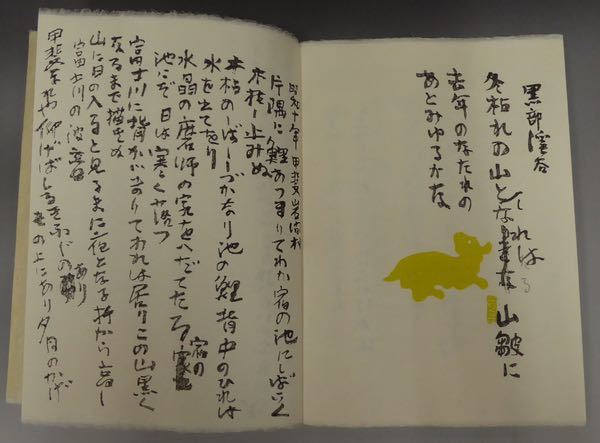 黒部渓谷
冬枯れの山となれば山皺に
去年のなだれの
あとみゆるかな
昭和十年 甲斐岩間村
片隅に鯉あつまりてわが宿の池にしばらく
木枯止みぬ
木枯のしばししづかなり池の鯉背中のひれは
水を立てをり
水晶の磨師の家をへだてたる宿の
池にぞ日は寒く落つ
富士川に背ありてわれは居りこの山黒く
なるまで描きぬ
山に日の入ると見るまに夜となる時から高し
富士川の波音
甲斐 や仰げばしろきふじの あり
の上にあり夕月のかげ